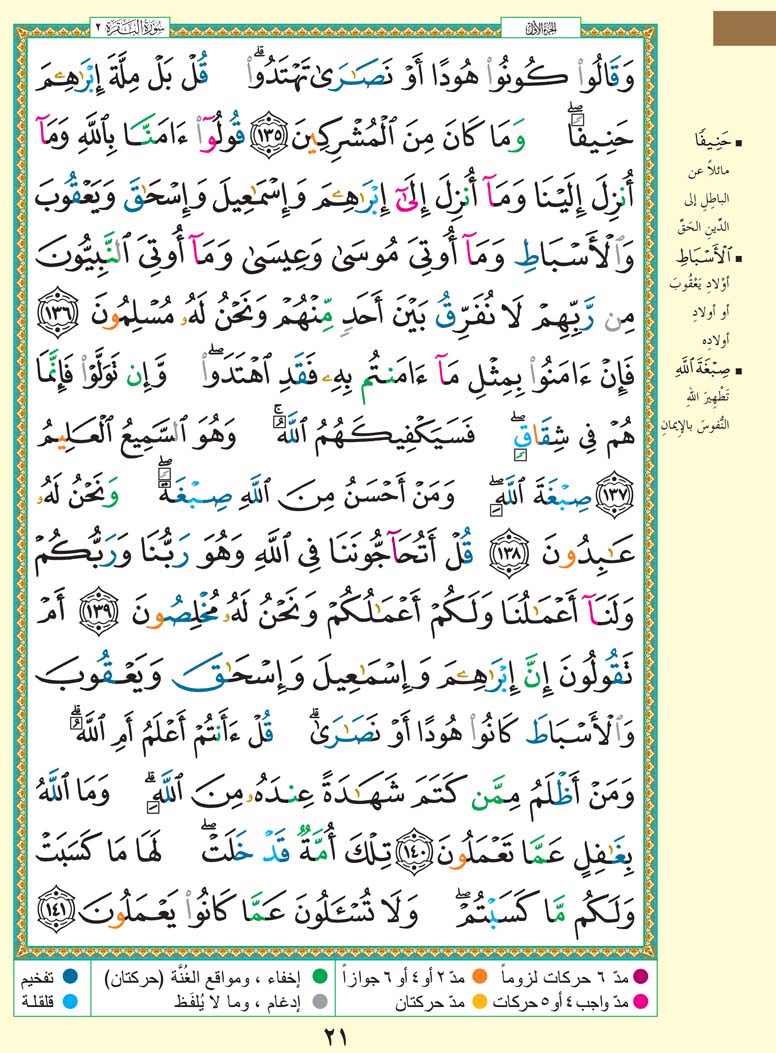 الجزء الأول
سورة البقرة ٢
وَقَالُوا۟ كُونُوا۟ هُودًا أَوْ نَصَـٰرَىٰ تَهْتَدُوا۟ ۗ قُلْ بَلْ مِلَّةَ إِبْرَٰهِـۧمَ
حَنِيفًا ۖ وَمَا كَانَ مِنَ ٱلْمُشْرِكِينَ ١٣٥ قُولُوٓا۟ ءَامَنَّا بِٱللَّهِ وَمَآ
أُنزِلَ إِلَيْنَا وَمَآ أُنزِلَ إِلَىٰٓ إِبْرَٰهِـۧمَ وَإِسْمَـٰعِيلَ وَإِسْحَـٰقَ وَيَعْقُوبَ
وَٱلْأَسْبَاطِ وَمَآ أُوتِىَ مُوسَىٰ وَعِيسَىٰ وَمَآ أُوتِىَ ٱلنَّبِيُّونَ
مِن رَّبِّهِمْ لَا نُفَرِّقُ بَيْنَ أَحَدٍ مِّنْهُمْ وَنَحْنُ لَهُۥ مُسْلِمُونَ ١٣٦
فَإِنْ ءَامَنُوا۟ بِمِثْلِ مَآ ءَامَنتُم بِهِۦ فَقَدِ ٱهْتَدَوا۟ ۖ وَّإِن تَوَلَّوْا۟ فَإِنَّمَا
هُمْ فِى شِقَاقٍ ۖ فَسَيَكْفِيكَهُمُ ٱللَّهُ ۚ وَهُوَ ٱلسَّمِيعُ ٱلْعَلِيمُ
١٣٧ صِبْغَةَ ٱللَّهِ ۖ وَمَنْ أَحْسَنُ مِنَ ٱللَّهِ صِبْغَةً ۖ وَنَحْنُ لَهُۥ
عَـٰبِدُونَ ١٣٨ قُلْ أَتُحَآجُّونَنَا فِى ٱللَّهِ وَهُوَ رَبُّنَا وَرَبُّكُمْ
وَلَنَآ أَعْمَـٰلُنَا وَلَكُمْ أَعْمَـٰلُكُمْ وَنَحْنُ لَهُۥ مُخْلِصُونَ ١٣٩ أَمْ
تَقُولُونَ إِنَّ إِبْرَٰهِـۧمَ وَإِسْمَـٰعِيلَ وَإِسْحَـٰقَ وَيَعْقُوبَ
وَٱلْأَسْبَاطَ كَانُوا۟ هُودًا أَوْ نَصَـٰرَىٰ ۗ قُلْ ءَأَنتُمْ أَعْلَمُ أَمِ ٱللَّهُ ۗ
وَمَنْ أَظْلَمُ مِمَّن كَتَمَ شَهَـٰدَةً عِندَهُۥ مِنَ ٱللَّهِ ۗ وَمَا ٱللَّهُ
بِغَـٰفِلٍ عَمَّا تَعْمَلُونَ ١٤٠ تِلْكَ أُمَّةٌ قَدْ خَلَتْ ۖ لَهَا مَا كَسَبَتْ
وَلَكُم مَّا كَسَبْتُمْ ۖ وَلَا تُسْـَٔلُونَ عَمَّا كَانُوا۟ يَعْمَلُونَ ١٤١
حَنِيفًا
مائلاً عن
الباطِلِ إلى
الدِّينِ الحَقِّ
ٱلْأَسْبَاطِ
أوْلادِ يَعْقُوبَ
أو أولادِ
أولاده
صِبْغَةَ ٱللَّهِ
تَطْهِيرَ اللهِ
النُّفوسَ بالإيمانِ
مدّ ٦ حركات لزوماً
مدّ ٢ أو ٤ أو ٦ جوازاً
إخفاء ، ومواقع الغُنَّة (حركتان)
تفخيم
مدّ واجب ٤ أو ٥ حركات
مدّ حركتان
إدغام ، وما لا يُلفَظ
قلقلة
٢١